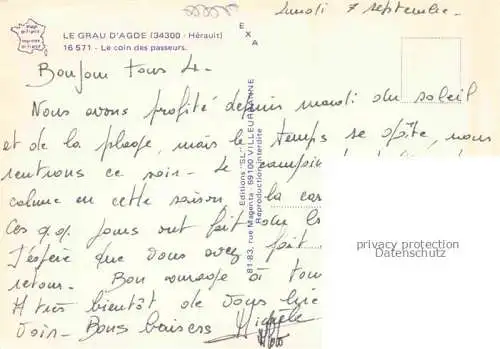 Lundi 7 septembre -
LE GRAU D'AGDE (34300 - Hérault)
16 571 - Le coin des passeurs.
EXA
Bonjour tous 4 -
Nous avons profité depuis mardi du soleil
et de la plage, mais le temps se gâte, nous
rentrions ce soir - Le campin
calme en cette saison la car
Ces qq. jours ont fait du
J'espère que vous avez fait
retour - Bon courage à tou
A très bientôt de vous
voir - Bons baisers Michèle
Editions "SL"
81-83, rue Magenta 69100 VILLEURBANNE
Reproduction interdite
privacy protection
Datenschutz